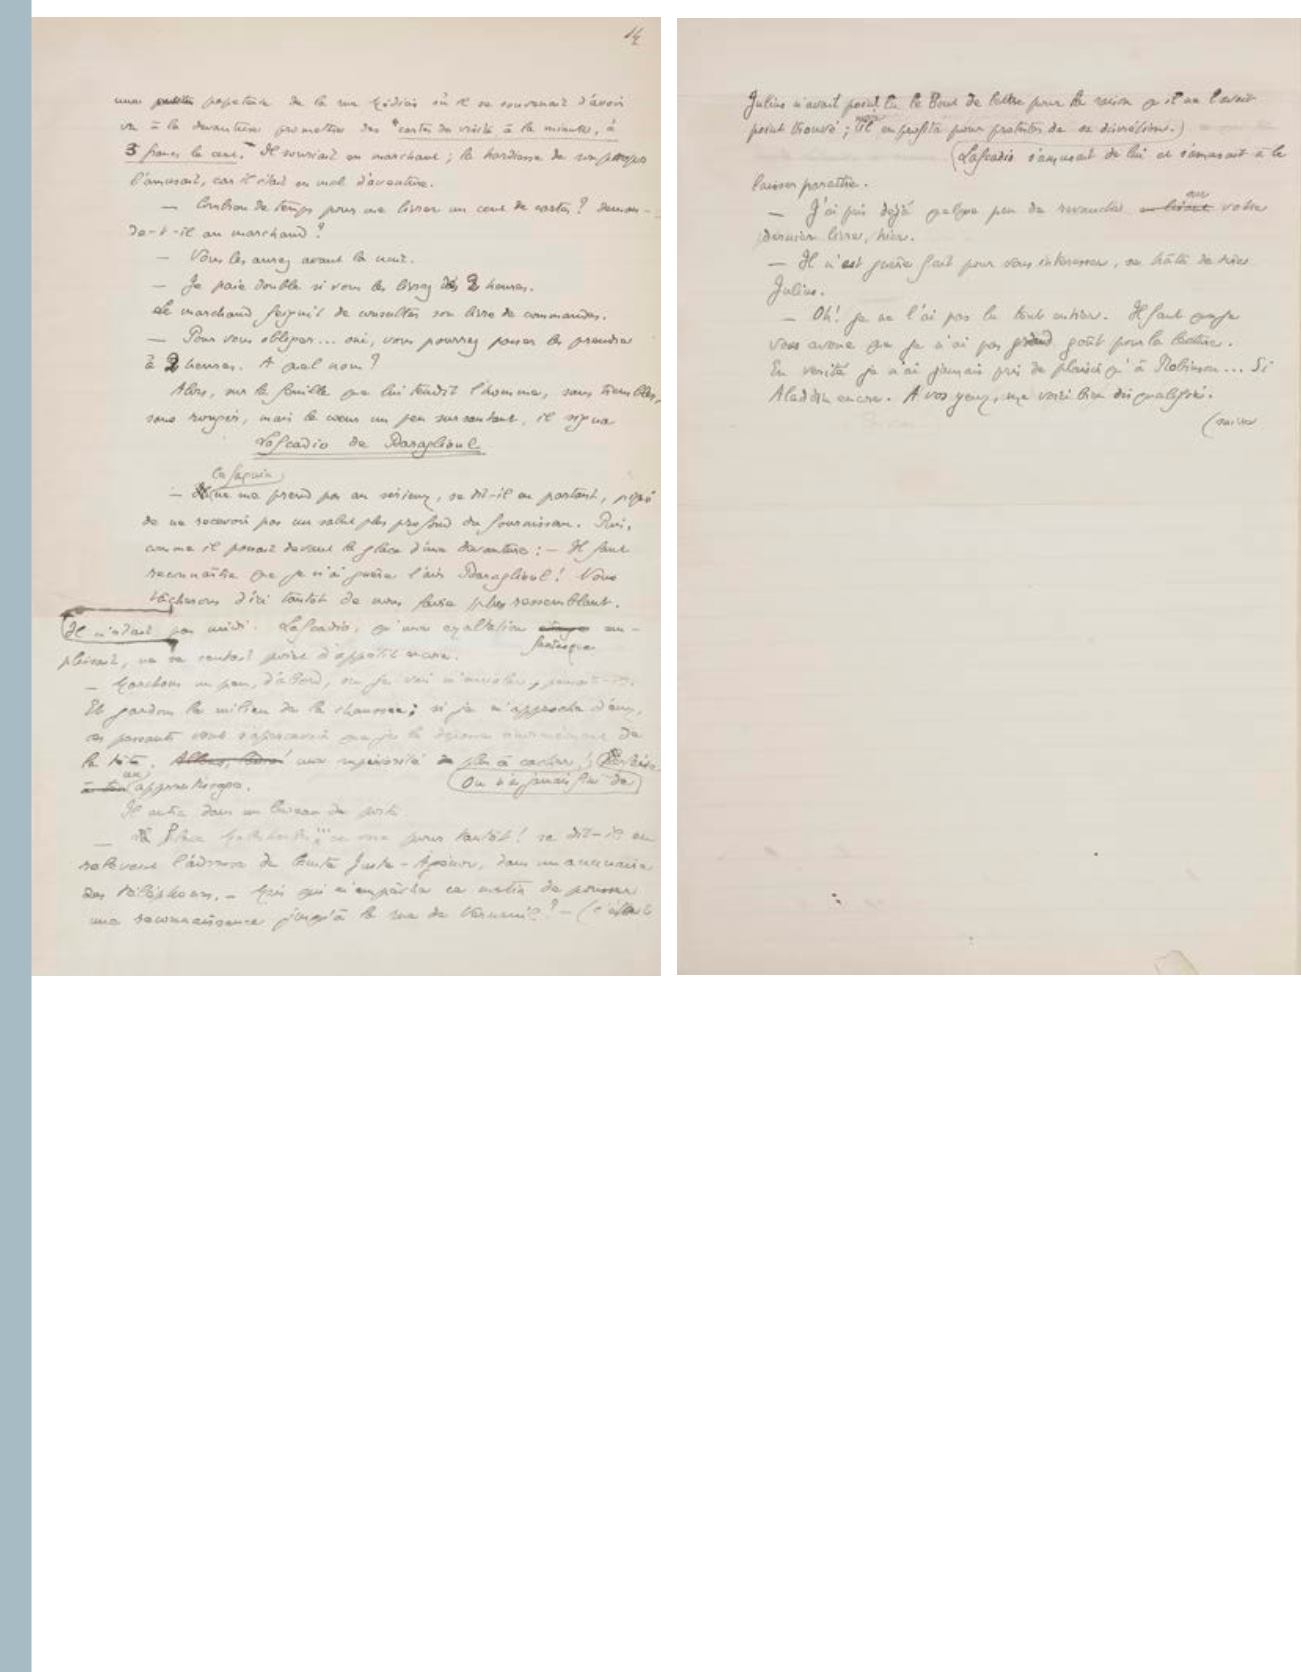 14
une petite papeterie de la rue Médicis où il se souvenait d'avoir
vu à la devanture promettre des "cartes de visite à la minute, à
3 francs le cent." Il souriait en marchant ; la hardiesse de son propos
l'amusait, car il était en mal d'aventure.
— Combien de temps pour me livrer un cent de cartes ? deman-
da-t-il au marchand ?
— Vous les aurez avant la nuit.
— Je paie double si vous les livrez dès 2 heures.
Le marchand feignit de consulter son livre de commandes.
— Pour vous obliger... oui, vous pourrez passer les prendre
à 2 heures. A quel nom ?
Alors, sur la feuille que lui tendit l'homme, sans trembler,
sans rougir, mais le cœur un peu sursautant, il signa
Lafcadio de Baraglioul
Ce faquin
— ne me prend pas au sérieux, se dit-il en partant, piqué
de ne recevoir pas un salut plus profond du fournisseur. Puis,
comme il passait devant la glace d'une devanture : — Il faut
reconnaître que je n'ai guère l'air Baraglioul ! Nous
tâcherons d'ici tantôt de nous faire plus ressemblant.
Il n'était pas midi. Lafcadio, qu'une exaltation em-
fantasque
plissait, ne se sentait point d'appétit encore.
— Marchons un peu, d'abord, ou je vais m'envoler, pensait-il.
Et gardons le milieu de la chaussée ; si je m'approche d'eux,
ces passants vont s'apercevoir que je les dépasse énormément de
la tête. une supériorité de plus à cacher !
On n'a jamais fini de
un apprentissage.
Il entra dans un bureau de poste.
— Place Malesherbes... ce sera pour tantôt ! se dit-il en
relevant l'adresse du Comte Juste-Agénor, dans un annuaire
des téléphones. — Mais qui m'empêche ce matin de pousser
une reconnaissance jusqu'à la rue de Verneuil ? — (c'était
Julius n'avait point lu le bout de lettre pour la raison qu'il ne l'avait
point trouvé ; il en profita pour protester de sa discrétion.)
Lafcadio s'amusait de lui et s'amusait à le
laisser paraître.
au
— J'ai pris déjà quelque peu de revanche en lisant votre
dernier livre, hier.
— Il n'est guère fait pour vous intéresser, se hâta de dire
Julius.
— Oh ! je ne l'ai pas lu tout entier. Il faut que je
vous avoue que je n'ai pas grand goût pour la lecture.
En vérité je n'ai jamais pris de plaisir qu'à Robinson... Si
Aladdin encore. A vos yeux, me voici bien disqualifié.
(suite